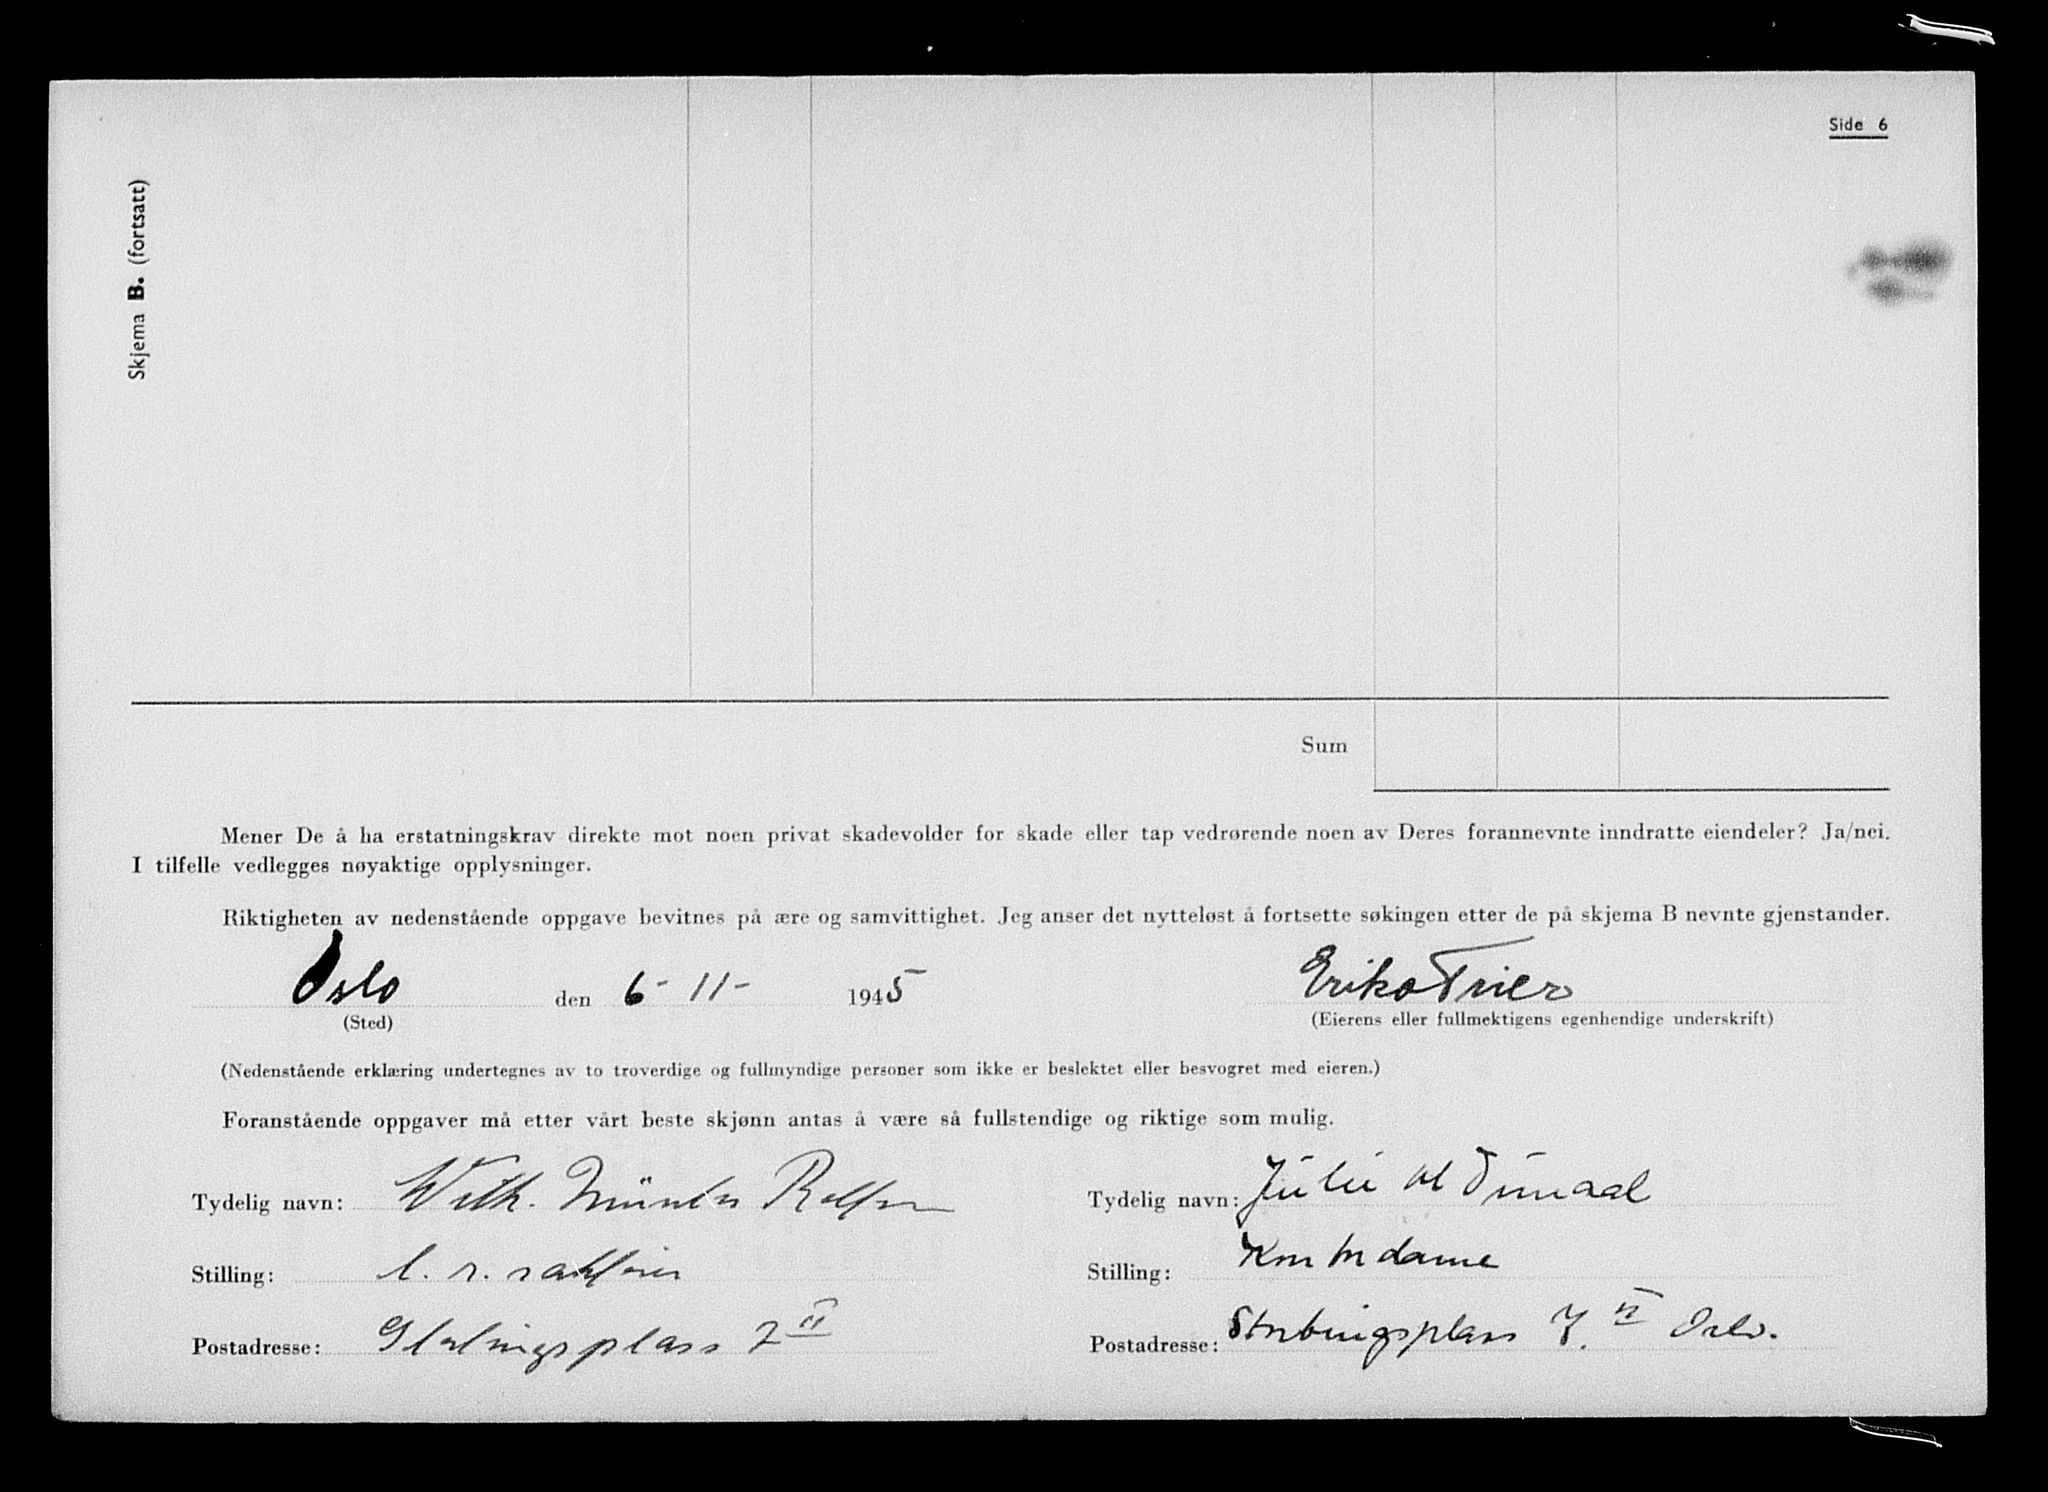 Side 6
Skjema B. (fortsatt)
Sum
Mener De å ha erstatningskrav direkte mot noen privat skadevolder for skade eller tap vedrørende noen av Deres forannevnte inndratte eiendeler? Ja/nei.
I tilfelle vedlegges nøyaktige opplysninger.
Riktigheten av nedenstående oppgave bevitnes på ære og samvittighet. Jeg anser det nytteløst å fortsette søkingen etter de på skjema B nevnte gjenstander.
Oslo den 6-11-1945 Erika Trier
(Sted) (Eierens eller fullmektigens egenhendige underskrift)
(Nedenstående erklæring undertegnes av to troverdige og fullmyndige personer som ikke er beslektet eller besvogret med eieren.)
Foranstående oppgaver må etter vårt beste skjønn antas å være så fullstendige og riktige som mulig.
Tydelig navn: Wilh. Münter Rolfsen Tydelig navn: Julie
Stilling: Stilling: Kontordame
Postadresse: Postadresse: Stortingsplass 7. II Oslo.